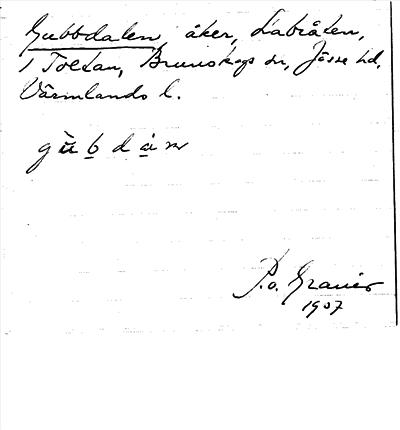 Gubbdalen, åker, Labråten,
1 Toltan, Brunskogs sn, Jösse hd,
Värmlands l.
gùbdàn
P.o. Granér
1907